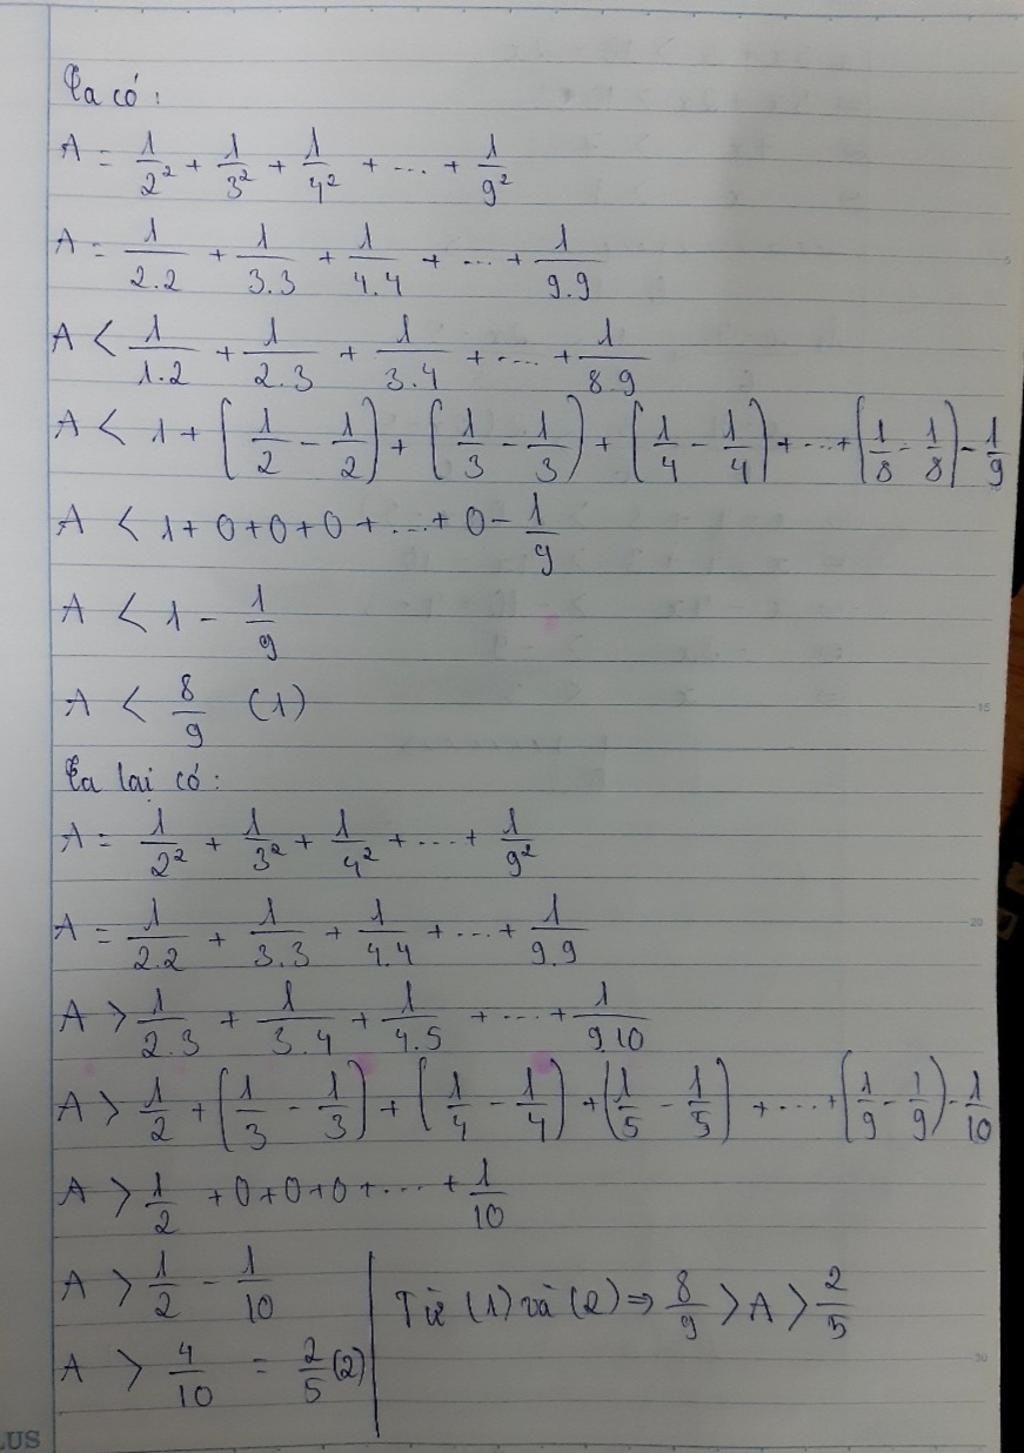 Ta có:
A = 1/2² + 1/3² + 1/4² + ... + 1/9²
A = 1/2.2 + 1/3.3 + 1/4.4 + ... + 1/9.9
A < 1/1.2 + 1/2.3 + 1/3.4 + .... + 1/8.9
A < 1 + (1/2 - 1/2) + (1/3 - 1/3) + (1/4 - 1/4) + ... + (1/8 - 1/8) - 1/9
A < 1 + 0 + 0 + 0 + ... + 0 - 1/9
A < 1 - 1/9
A < 8/9 (1)
Ta lại có:
A = 1/2² + 1/3² + 1/4² + ... + 1/9²
A = 1/2.2 + 1/3.3 + 1/4.4 + ... + 1/9.9
A > 1/2.3 + 1/3.4 + 1/4.5 + ... + 1/9.10
A > 1/2 + (1/3 - 1/3) + (1/4 - 1/4) + (1/5 - 1/5) + ... + (1/9 - 1/9) - 1/10
A > 1/2 + 0 + 0 + 0 + ... + 1/10
A > 1/2 - 1/10
A > 4/10 = 2/5 (2)
Từ (1) và (2) ⇒ 8/9 > A > 2/5
5
15
20
30
LUS